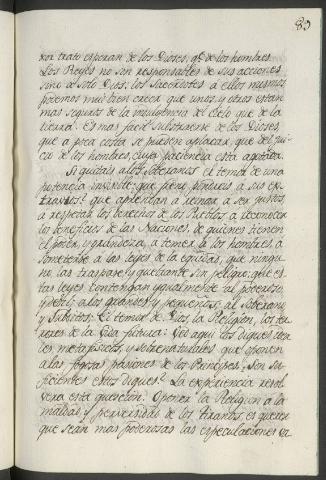 83
jor trato esperan de los Dioses, qe. de los hombres.
Los Reyes no son responsables de sus acciones
sino de solo Dios: los Sacerdotes a ellos mismos
podemos muí bien creer que unos, y otros están
mas seguros de la indulgencia del Cielo que de la
tierra. Es mas facil substraerse de los Dioses,
que a poca costa se pueden aplacar, que del jui-
cio de los hombres, cuya paciencia está agotada.
Si quitais a los Soberanos el temor de una
potencia invisible: que freno pondreis a sus ex-
travios? que aprendan a reinar, a ser justos,
a respetar los derechos de los Pueblos, a reconocer
los beneficios de las Naciones, de quienes tienen
el poder, y grandeza, a temer a los hombres, a
someterse a las leyes de la equidad, que ningu-
no, las traspase, y quede sin peligro; que es-
tas leyes contengan ygualmente al poderoso,
y debil, a los grandes, y pequeños, al Soberano
y Subditos. El temor de Dios, la Religion, los te-
rrores de la vida futura: Ved aquí los diques dé-
biles, metafisicos, y sobrenaturales que oponen
a las fogosas pasiones de los Principes. Son su-
ficientes estos diques? La experiencia resol-
verá esta question. Oponer la Religion a la
maldad, y perversidad de los tiranos, es querer
que sean mas poderosas las especulaciones